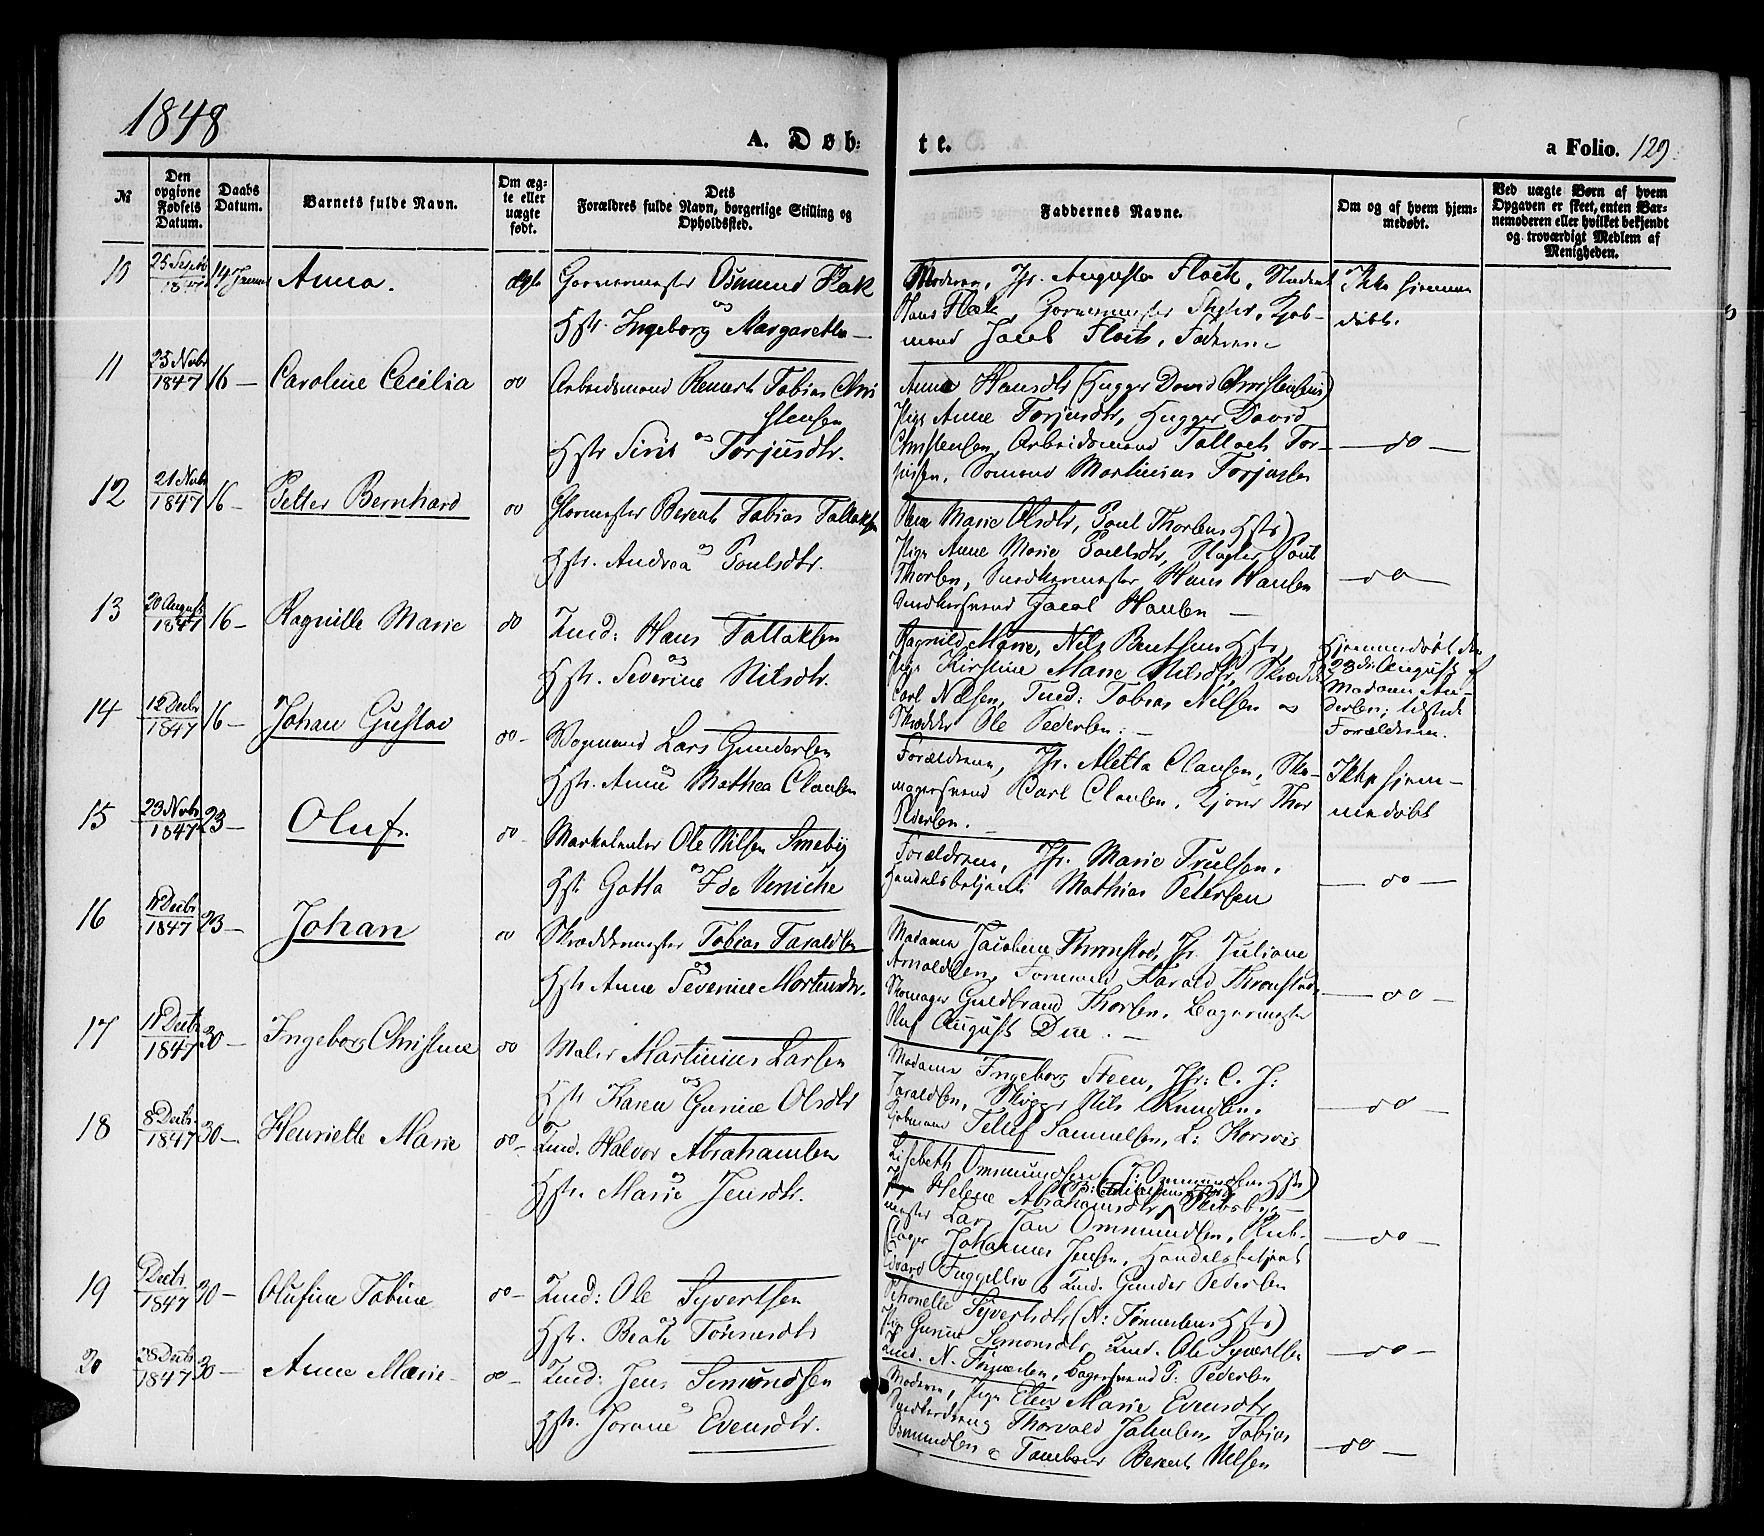 1848
A. Døb: te. a Folio. 129.
№
Den opgivne Fødsels Datum.
Daabs Datum.
Barnets fulde Navn.
Om ægte eller uægte født.
Dets Forældres fulde Navn, borgerlige Stilling og Opholdssted.
Faddernes Navne.
Om og af hvem hjemmedøbt.
Ved uægte Børn af hvem Opgaven er skeet, enten Barnemoderen eller hvilket bekjendt og troværdigt Medlem af Menigheden.
10 25 Septbr 1847 14 Januar Anna. Ægte Gorvermester Osmund Flak
og
Hstr. Ingeborg Margarethe
Moderen, Jfr. Augusta Flack, Student
Hans Flack, Gorvermester, Kjøb-
mand Jacob Flack, Faderen
Ikke hjemme
døbt.
11 25 Novbr 1847 16 Caroline Cecilia do Arbeidsmand Tobias Chri
stensen
og
Hstr Siris Torjusdtr.
Anne Hansdtr (Hugger David Christensens)
Pige Anne Torjusdtr, Hugger David
Christensen, Arbeidsmand Tallack Tor-
jusen, Sømand Martinius Torjusen
do
12 21 Novbr 1847 16 Petter Bernhard do Berent Tobias Tallaksen
og
Hstr. Andrea Poulsdtr.
Marie Olsdtr, Poul Thorsens Hstr)
Pige Anne Marie Poulsdtr, Poul
Thorsen, Snedkermester Hans Hansen
Snedkersvend Jacob Hansen
do
13 20 August 1847 16 Ragnille Marie do Tmd: Hans Tallaksen
og
Hstr. Severine Nilsdtr.
Ragnild Marie, Nils Hstr,
Pige Kirstine Marie Nilsdtr, Skrædder
Carl Nilsen, Tmd: Tobias Nilsen og
Skrædder Ole Pedersen.
Hjemmedøbt den
23de August af
Madame An-
dersen; tilstede
Forældrene.
14 12 Decbr 1847 16 Johan Gustav do Vogmand Lars Gundersen
og
Hstr. Anne Mathea Clausen
Forældrene, Jfr. Aletta Clausen, Sko-
magersvend Carl Clausen, Thor
Pedersen.
Ikke hjem-
medøbt
15 23 Novbr 1847 23 Oluf. do Markelenter Ole Nilsen Smeby
og
Hst. Gotta Ida Vernicke
Forældrene, Jfr. Marie Truelsen,
Handelsbetjent Mathias Petersen
do
16 11 Decbr 1847 23 Johan do Skræddermester Tobias Taraldsen
og
Hstr Anne Severine Mortensdtr.
Madame Jacobine Thronstad, Jfr. Juliane
Arnoldsen, Formand Harald Thronstad
Skomager Guldbrand Thorsen, Bagermester
Oluf August Due.
do
17 11 Decbr 1847 30 Ingeborg Christine do Maler Martinius Larsen
og
Hstr Karen Gurine Olsdtr
Madame Ingeborg Steen, Jfr: C. J:
Taraldsen, Nils Knudsen,
Kjøbmand Tellef Samuelsen, L: Korsvig
do
18 8 Decbr 1847 30 Henriette Marie do Tmd. Halvor Abrahamsen
og
Hstr. Marie Jensdtr.
Lisebeth Ommundsen (J: Ommundsens Hstr)
Helene Abrahamsdtr Skibsbyg-
mester Lars Jan Ommundsen, Reb-
slager Johannes Jensen, Handelsbetjent
Edvard Fuggellie & Tmd. Gunder Pedersen
do
19 Decbr 1847 30 Olufine Tobine do Tmd: Ole Syvertsen
og
Hstr. Beate Tønnesdtr
Petronelle Syvertsdtr (N: Tønnesens Hstr)
Pige Gurine Simonsdtr, Tmd. Ole Syvertsen
Tmd. N. Tønnesen, Bagersvend P: Pedersen
do
20 28 Decbr 1847 30 Anne Marie do Tmd: Jens Simondsen
og
Hstr. Jorane Evensdtr.
Moderen, Pige Elen Marie Evensdtr
Snedkerdreng Thorvald Jakobsen, Tobias
Osmundsen & Tambour Berent Nilsen
do